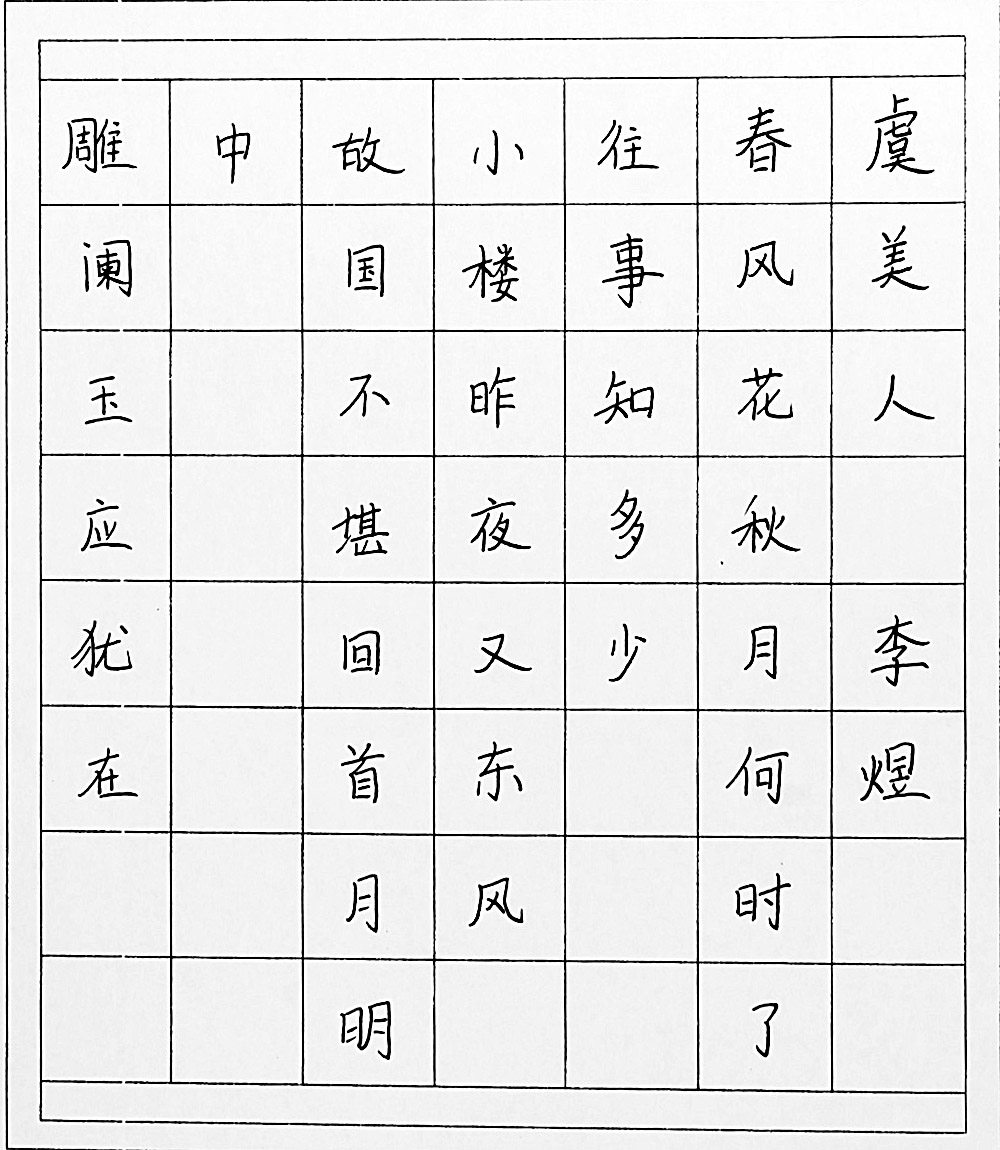 虞美人 李煜
春风花秋月何时了
往事知多少
小楼昨夜又东风
故国不堪回首月明
中
雕阑玉应犹在